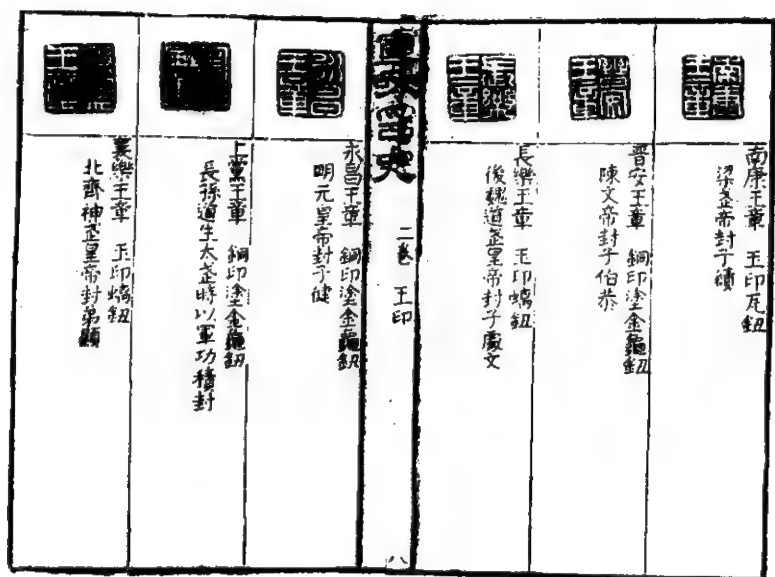 南康王章　玉印瓦鈕
梁武帝封子績
晉安王章　銅印塗金龜鈕
陳文帝封子伯恭
長樂王章　玉印螭鈕
後魏道武皇帝封子處文
宣和集古印史　二卷　王印　八
永昌王章　銅印塗金龜鈕
明元皇帝封子健
上黨王章　銅印塗金龜鈕
長孫道生太武時以軍功積封
襄樂王章　玉印螭鈕
北齊神武皇帝封弟顯